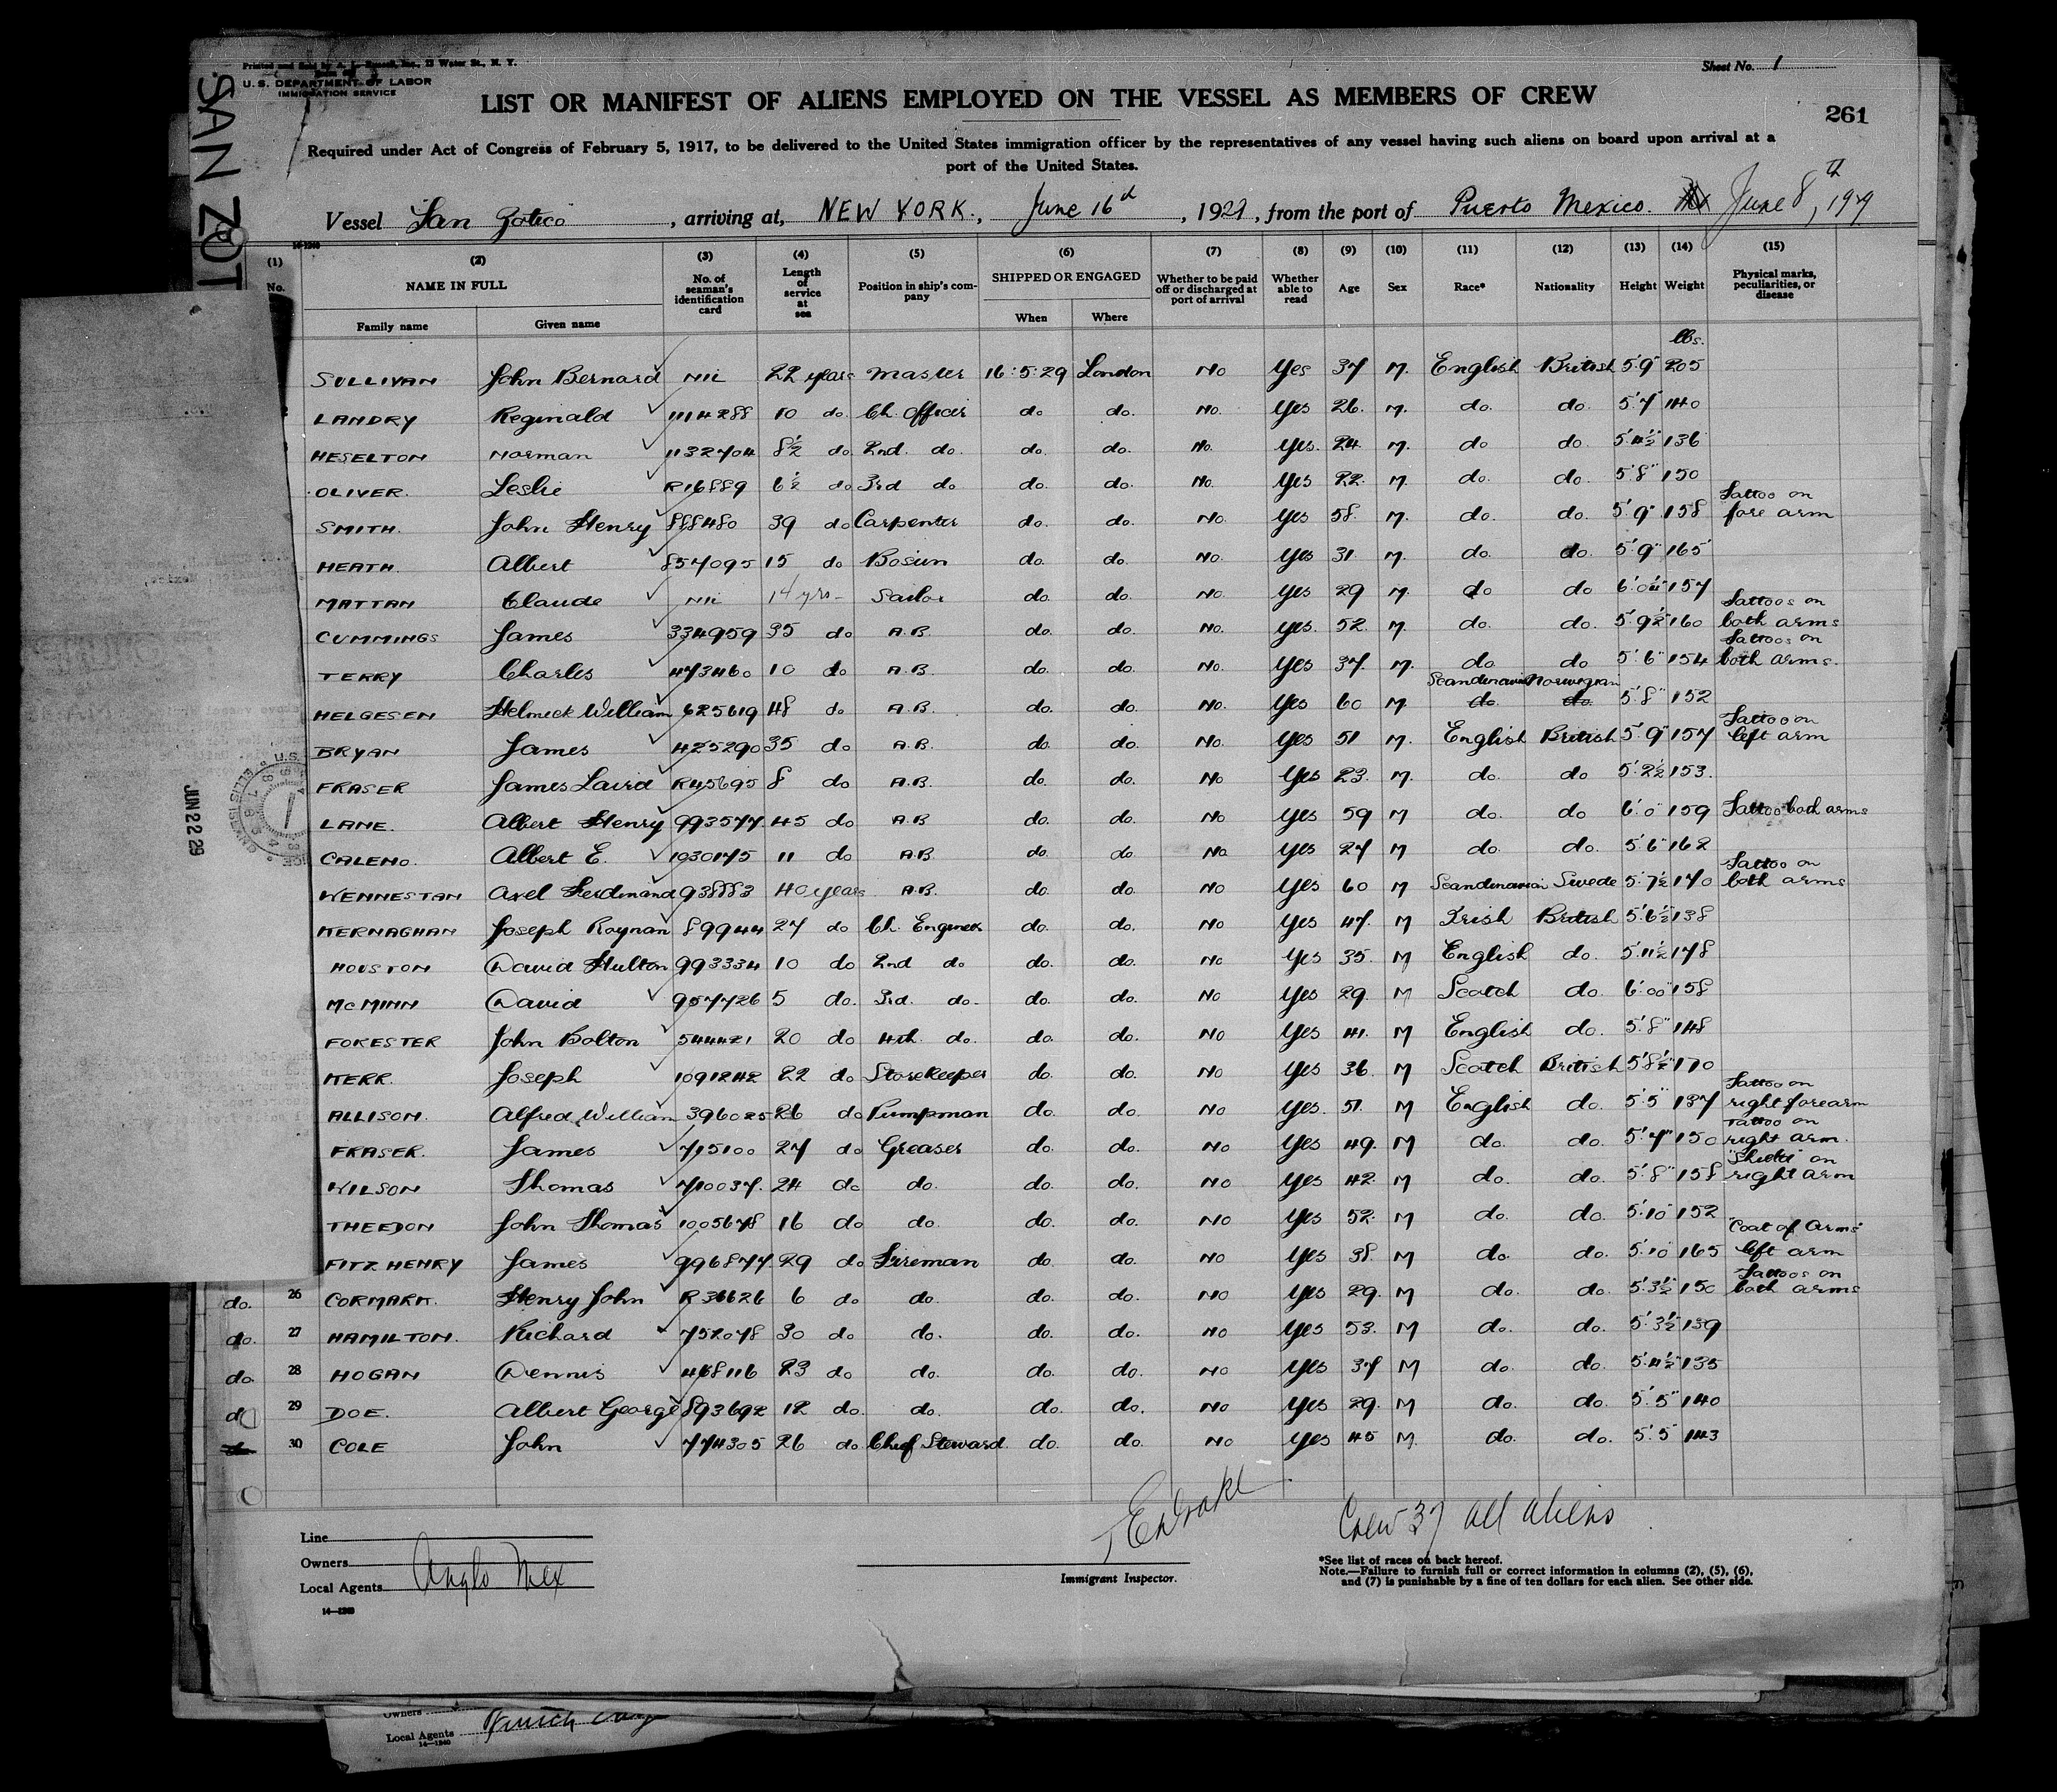 SAN ZOT
Printed and Sold by A. L. Russell, Inc., 12 Water St., N. Y.
U. S. DEPARTMENT OF LABOR
IMMIGRATION SERVICE
Sheet No. 1
LIST OR MANIFEST OF ALIENS EMPLOYED ON THE VESSEL AS MEMBERS OF CREW
261
Required under Act of Congress of February 5, 1917, to be delivered to the United States immigration officer by the representatives of any vessel having such aliens on board upon arrival at a
port of the United States.
Vessel San Zotico, arriving at, NEW YORK., June 16th, 1929, from the port of Puerto Mexico. June 8th, 1929
(1) (2) (3) (4) (5) (6) (7) (8) (9) (10) (11) (12) (13) (14) (15)
No. NAME IN FULL No. of seaman's identification card Length of service at sea Position in ship's company SHIPPED OR ENGAGED Whether to be paid off or discharged at port of arrival Whether able to read Age Sex Race* Nationality Height Weight Physical marks, peculiarities, or disease
Family name Given name When Where
lbs.
SULLIVAN John Bernard Nil 22 years Master 16:5:29 London No Yes 37 M. English British 5'9" 205
LANDRY Reginald 1114288 10 do. Ch. Officer do. do. No. Yes 26. M. do. do. 5'7 140
HESELTON Norman 1132704 8½ do 2nd. do. do. do. No. Yes. 24. M. do do 5'4½ 136
OLIVER. Leslie R16889 6½ do 3rd do do. do. No. Yes 22. M. do. do. 5'8" 150
SMITH. John Henry 888480 39 do Carpenter do. do. No. Yes 58. M. do. do. 5'9" 158 Tattoo on fore arm
HEATH. Albert 857095 15 do Bosun do. do. No. Yes 31. M. do. do. 5'9" 165
MATTAN Claude Nil 14 yrs - Sailor do. do. No. Yes 29 M. do do 157
CUMMINGS James 334959 35 do A.B. do. do. No. Yes. 52. M. do. do. 5'9½ 160 Tattoos on both arms
TERRY Charles 473460 10 do A.B. do. do. No. Yes 37. M. do do 5'6" 154 Tattoos on both arms.
HELGESEN Helmick William 625619 48 do A.B. do. do. No. Yes 60 M. Scandinavian Norwegian do. do. 5'8" 152
BRYAN James 425290 35 do A.B. do. do. No. Yes 51 M. English British 5'9" 157 Tattoo on left arm
FRASER James Laird R45695 8 do A.B. do. do. No Yes 23. M. do. do 5'2½ 153.
LANE. Albert Henry 993577. 45 do A.B do. do. No Yes 59 M do. do 6'0" 159 Tattoo both arms
CALENO. Albert E. 1030175 11 do A.B. do. do. No Yes 27 M do. do. 5'6" 162
WENNESTAN Axel Ferdinand 938883 40 years A.B. do. do. No Yes 60 M Scandinavian Swede 5'7½ 170 Tattoo on both arms
KERNAGHAN Joseph Roynan 89944 27 do Ch. Engineer do. do. No Yes 47. M Irish British 5'6½ 138
HOUSTON David Hulton 993334 10 do 2nd do do. do. No Yes 35. M English do. 5'11½ 178
McMINN David 957726 5 do. 3rd. do. do. do. No Yes 29. M Scotch do. 6'00" 158
FORESTER John Bolton 544421 20 do 4th. do. do. do. No Yes 41. M English do. 5'8" 148
KERR. Joseph 1091242 22 do Storekeeper do. do. No Yes 36. M Scotch British 5'8½ 170
ALLISON. Alfred William 396025 26 do Pumpman do. do. No Yes. 51. M English do. 5'5" 137 Tattoo on right forearm
FRASER. James 715100 27 do Greaser do. do. No Yes 49. M do. do. 5'7" 150 Tattoo on right arm.
WILSON Thomas 710037. 24 do do. do. do. No Yes 42. M do. do. 5'8" 158 "Shield" on right arm
THEEDON John Thomas 1005678 16 do do. do. do. No Yes 52. M do. do. 5'10" 152
FITZ HENRY James 996877 29 do Fireman do. do. No Yes 38. M do. do. 5'10 165 "Coat of Arms" left arm
do. 26 CORMARK. Henry John R36626 6 do do. do. do. No Yes 29. M do. do. 5'3½ 150 Tattoos on both arms
do. 27 HAMILTON. Richard 752078 30 do do. do. do. No Yes 53. M do. do. 5'3½ 139
do. 28 HOGAN Dennis 468116 23 do do. do. do. No Yes 37 M do. do. 5'4½ 135
do 29 DOE. Albert George 893692 12 do. do. do. do. No Yes 29. M do. do. 5'5" 140
30 COLE John 774305 26 do Chief Steward. do. do. No Yes 45 M. do. do. 5'5 143
JUN 22 29
Crew 37 all aliens
Line
Owners
Local Agents Anglo Mex
14—1240
Immigrant Inspector.
*See list of races on back hereof.
Note.—Failure to furnish full or correct information in columns (2), (5), (6),
and (7) is punishable by a fine of ten dollars for each alien. See other side.
Owners
Local Agents
14—1240